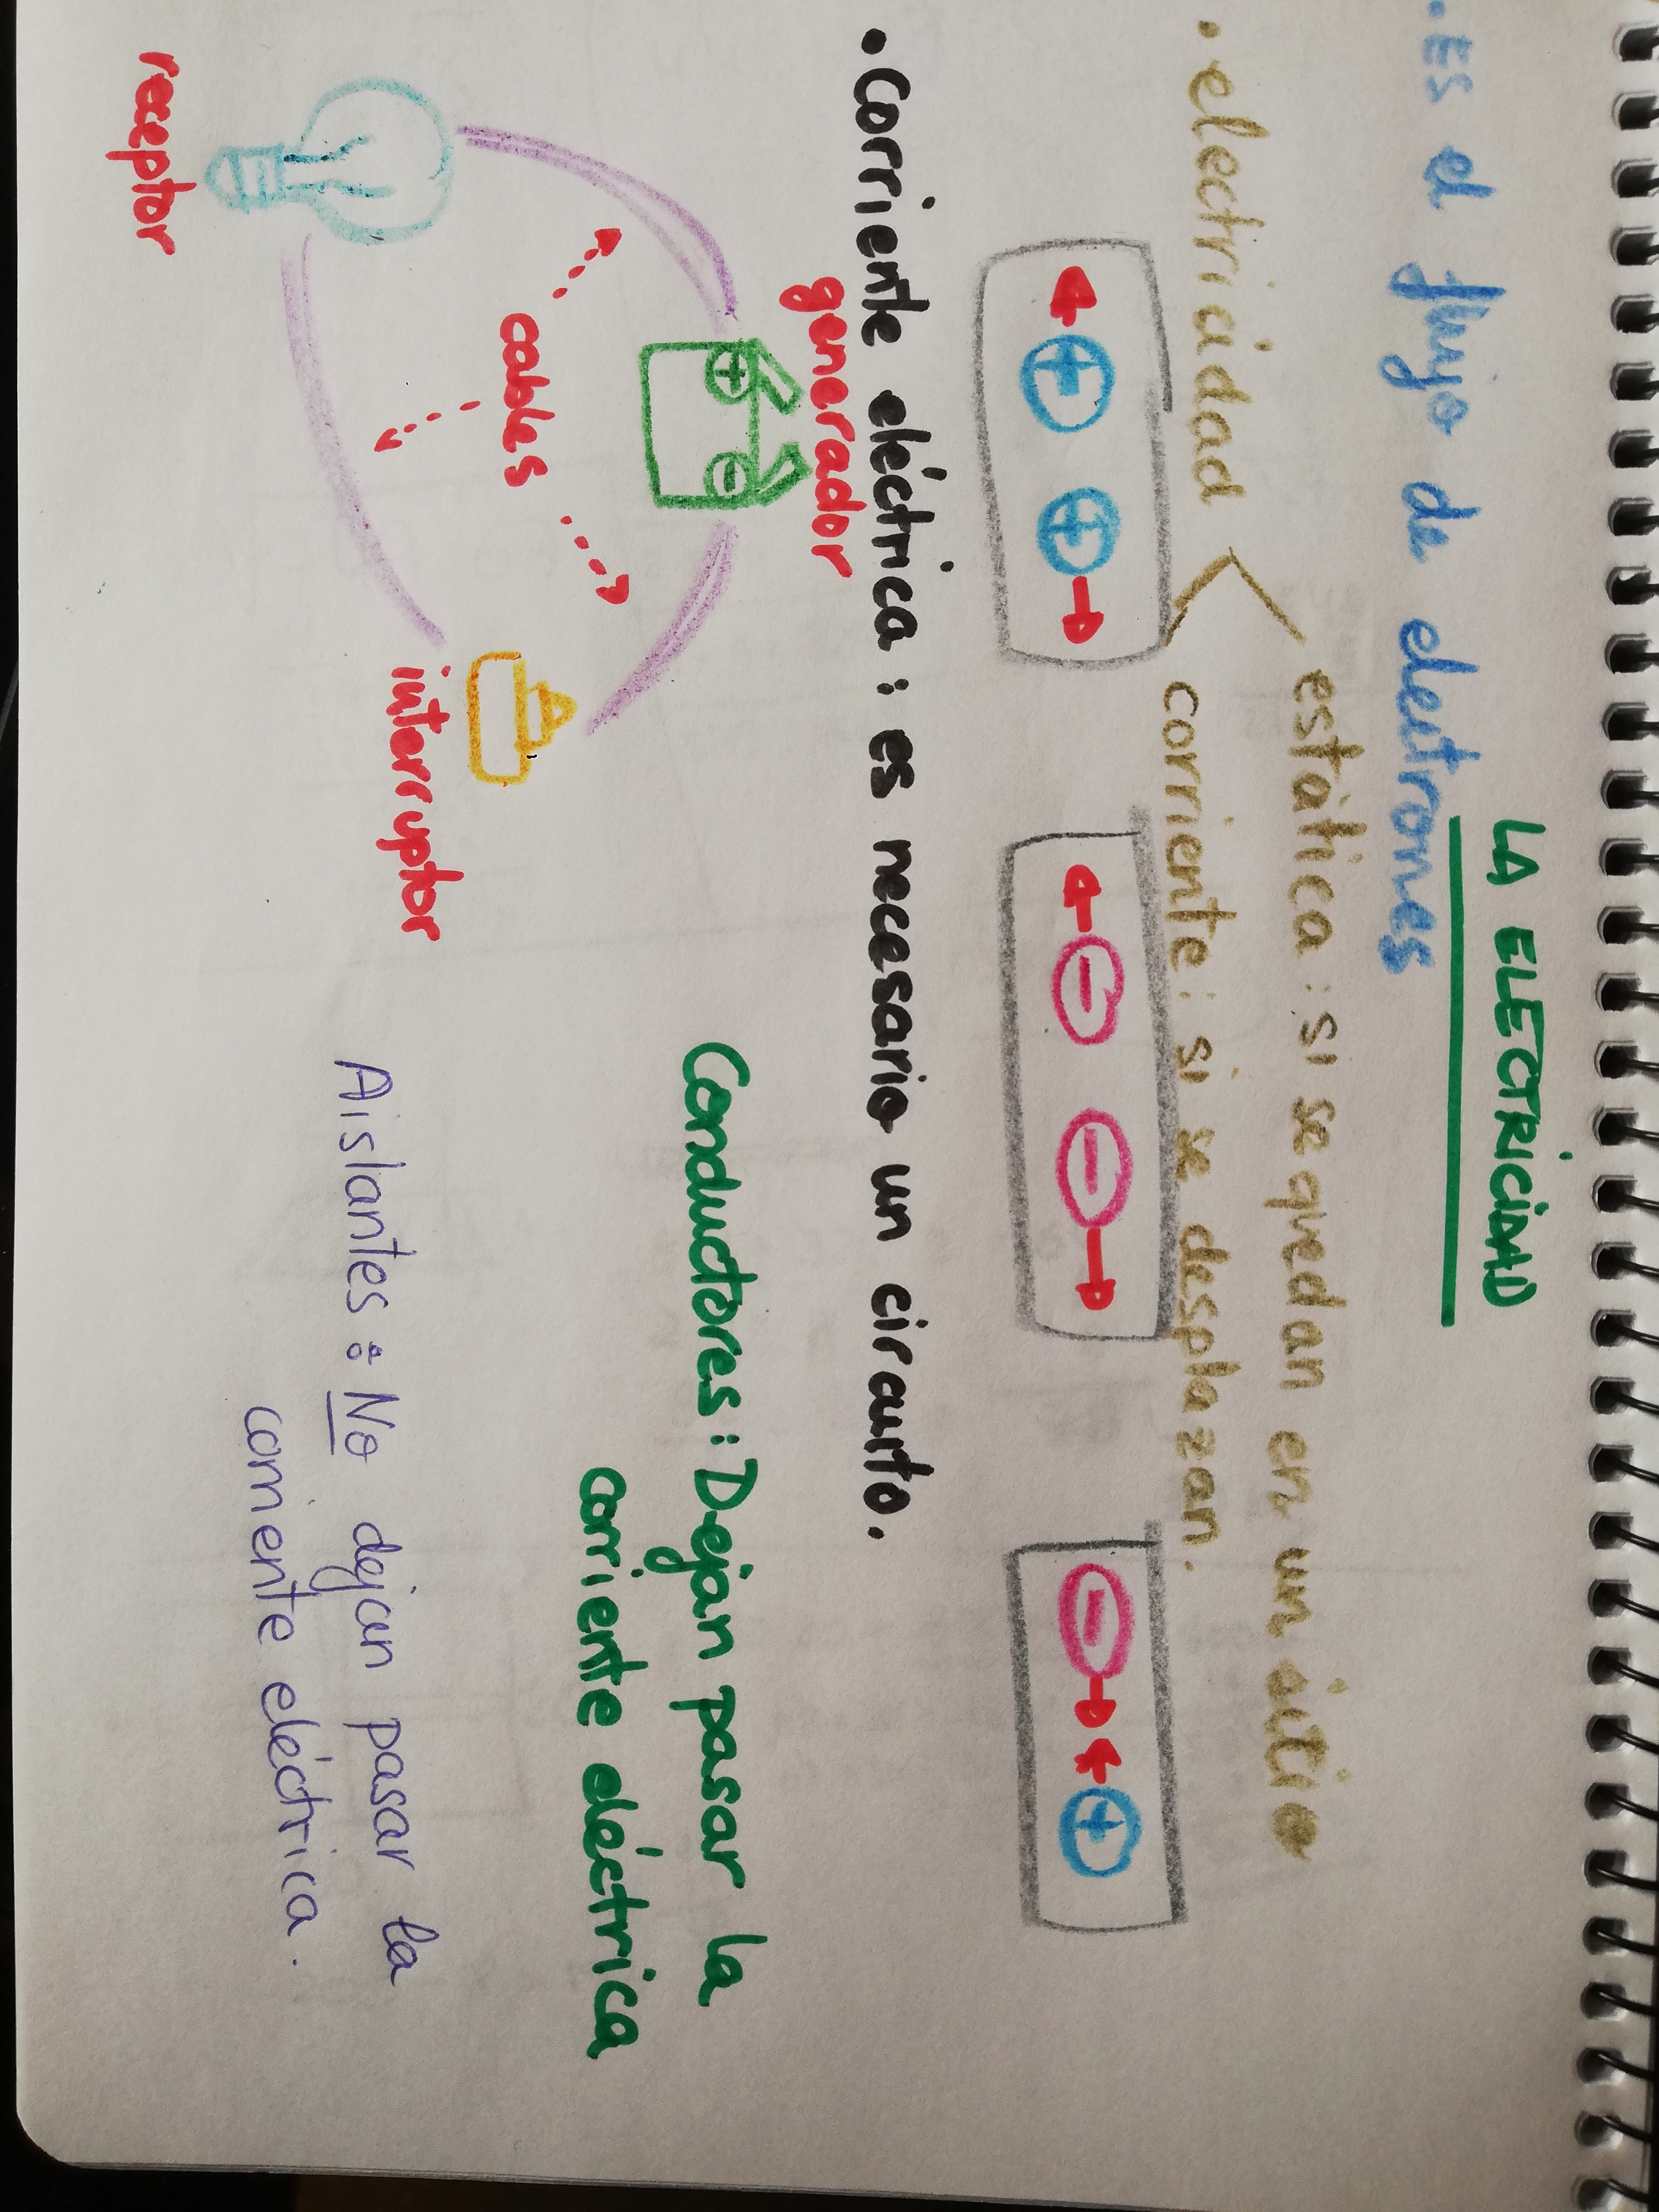 LA ELECTRICIDAD
. ES el flujo de electrones
estática : si se quedan en un sitio
. electricidad
corriente : si se desplazan.
+ + - - - +
. Corriente eléctrica : es necesario un circuito.
generador
+ -
cables
receptor
interruptor
Conductores : Dejan pasar la
corriente eléctrica
Aislantes : No dejan pasar la
corriente eléctrica.